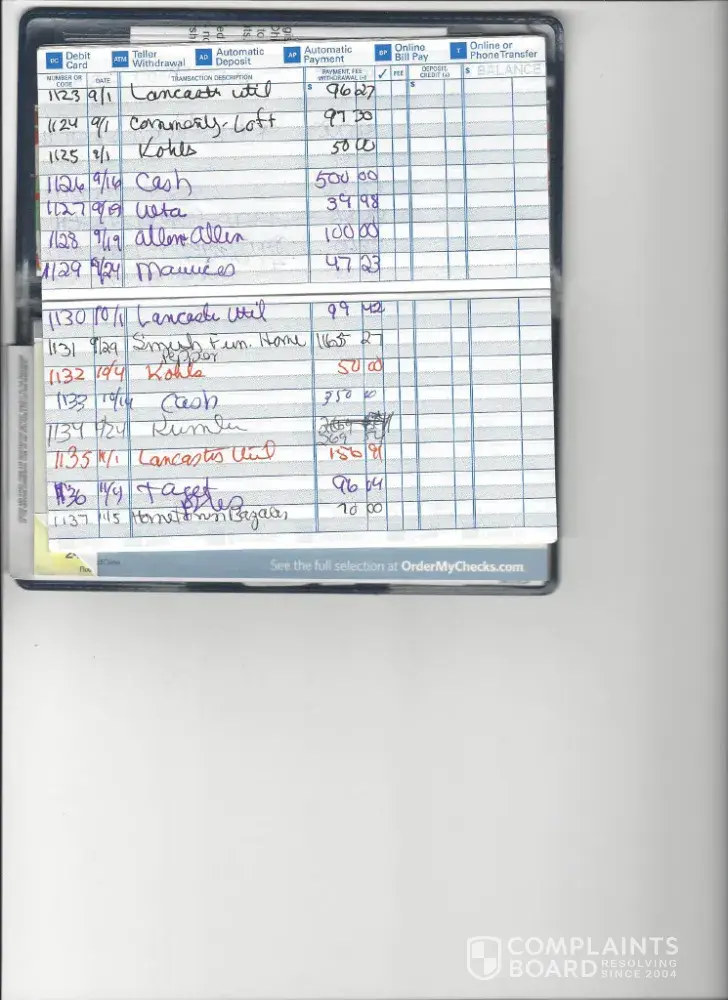 DC Debit Card ATM Teller Withdrawal AD Automatic Deposit AP Automatic Payment BP Online Bill Pay T Online or Phone Transfer
NUMBER OR CODE DATE TRANSACTION DESCRIPTION PAYMENT, FEE WITHDRAWAL (-) ✓ FEE DEPOSIT, CREDIT (+) $ BALANCE
1123 9/1 Lancaster Util $ 96 27 $
1124 9/1 97 30
1125 9/1 Kohls 50 00
1126 9/16 Cash 500 00
1127 Ulta 39 98
1128 9/19 Allen Allen 100 00
1129 9/24 Maurices 47 23
1130 10/1 Lancaster Util 99 42
1131 9/29 Smish Fun. Home 1165 27
pepper
1132 10/4 Kohls 50 00
1133 10/14 Cash 350 00
1134
1135 Lancaster Util 156
1136 11/4 Taget 96 04
1137 HomeTown 70 00
See the full selection at OrderMyChecks.com
COMPLAINTS BOARD RESOLVING SINCE 2004